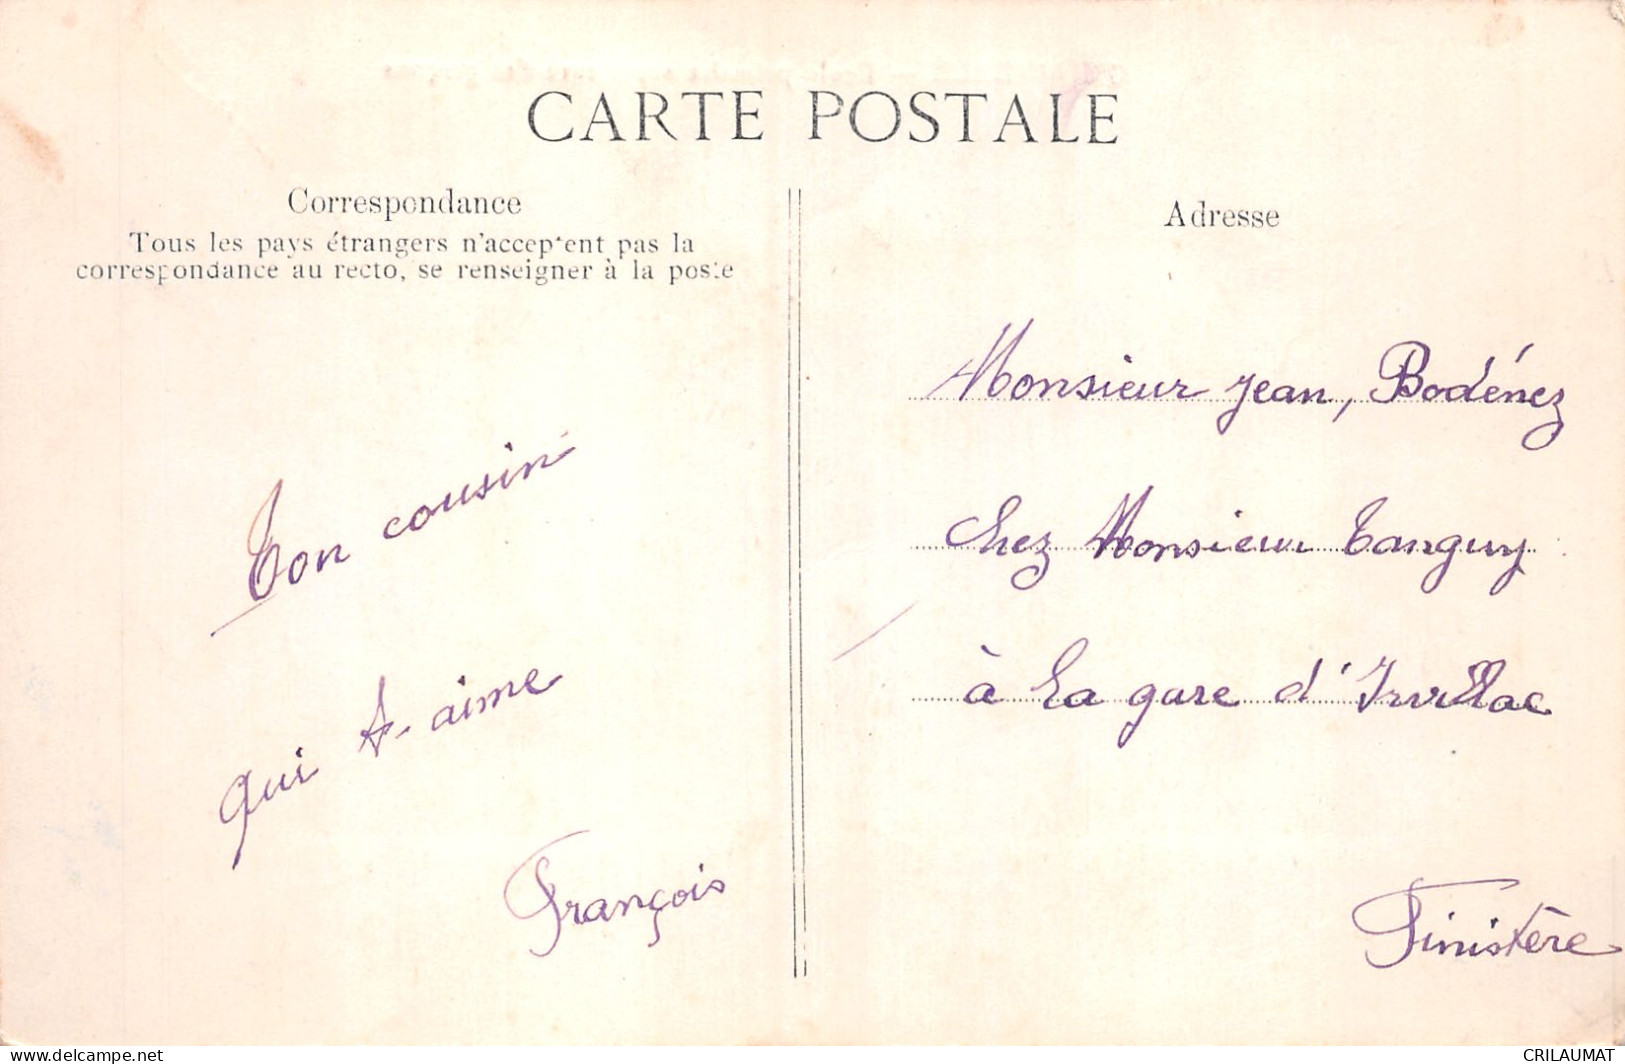 CARTE POSTALE
Correspondance
Tous les pays étrangers n'acceptent pas la
correspondance au recto, se renseigner à la poste
Ton cousin
qui t-aime
François
Adresse
Monsieur Jean, Bodénez
Chez Monsieur Tanguy
à la gare d'Irvillac
Finistère
www.delcampe.net
CRILAUMAT